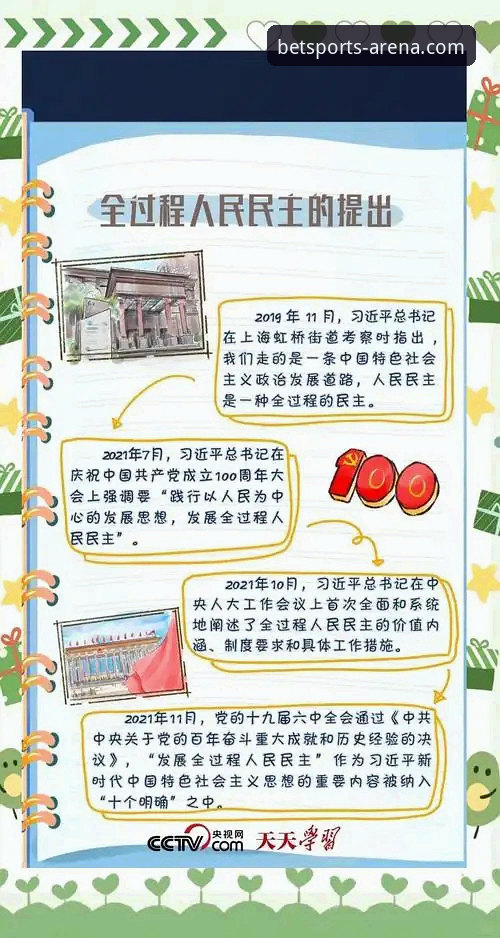 betsports-arena.com
全过程人民民主的提出
2019 年 11 月，习近平总书记
在上海虹桥街道考察时指出，
我们走的是一条中国特色社会
主义政治发展道路，人民民主
是一种全过程的民主。
2021年7月，习近平总书记在
庆祝中国共产党成立100周年大
会上强调要“践行以人民为中
心的发展思想，发展全过程人
民民主”。
100
2021年10月，习近平总书记在中
央人大工作会议上首次全面和系统
地阐述了全过程人民民主的价值内
涵、制度要求和具体工作措施。
2021年11月，党的十九届六中全会通过《中共
中央关于党的百年奋斗重大成就和历史经验的决
议》，“发展全过程人民民主”作为习近平新
时代中国特色社会主义思想的重要内容被纳入
“十个明确”之中。
CCTV.com 央视网 天天学習